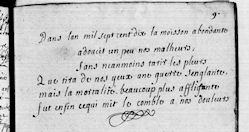 9.
Dans lan mil sept cent dix la moisson abondante
adoucit un peu nos malheurs,
sans neanmoins tarir les pleurs
Que tira de nos yeux une guerre sanglante,
mais la mortalité, beaucoup plus affligante
fut enfin cequi mit le comble a nos douleurs